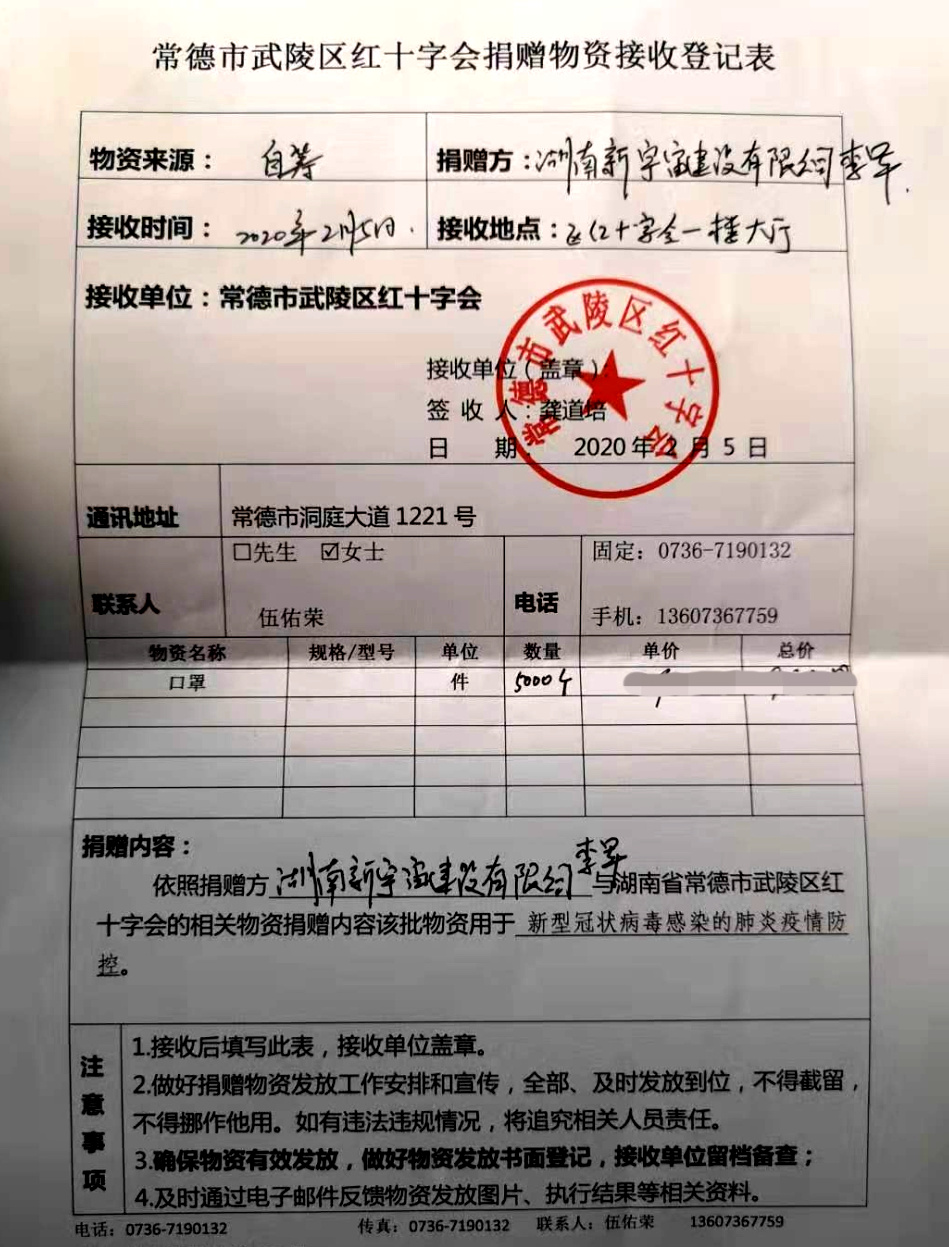 常德市武陵区红十字会捐赠物资接收登记表
物资来源： 自筹
捐赠方：湖南新宇宙建设有限公司李军
接收时间： 2020年2月5日.
接收地点：区红十字会一楼大厅
接收单位：常德市武陵区红十字会
接收单位（盖章）：
签 收 人：龚道培
日 期： 2020年2月5日
常德市武陵区红十字会
通讯地址 常德市洞庭大道1221号
联系人 □先生 ☑女士
伍佑荣
电话 固定：0736-7190132
手机：13607367759
物资名称 规格/型号 单位 数量 单价 总价
口罩 件 5000个
捐赠内容：
依照捐赠方湖南新宇宙建设有限公司李军与湖南省常德市武陵区红
十字会的相关物资捐赠内容该批物资用于 新型冠状病毒感染的肺炎疫情防
控。
注意事项
1.接收后填写此表，接收单位盖章。
2.做好捐赠物资发放工作安排和宣传，全部、及时发放到位，不得截留，
不得挪作他用。如有违法违规情况，将追究相关人员责任。
3.确保物资有效发放，做好物资发放书面登记，接收单位留档备查；
4.及时通过电子邮件反馈物资发放图片、执行结果等相关资料。
电话：0736-7190132 传真：0736-7190132 联系人：伍佑荣 13607367759